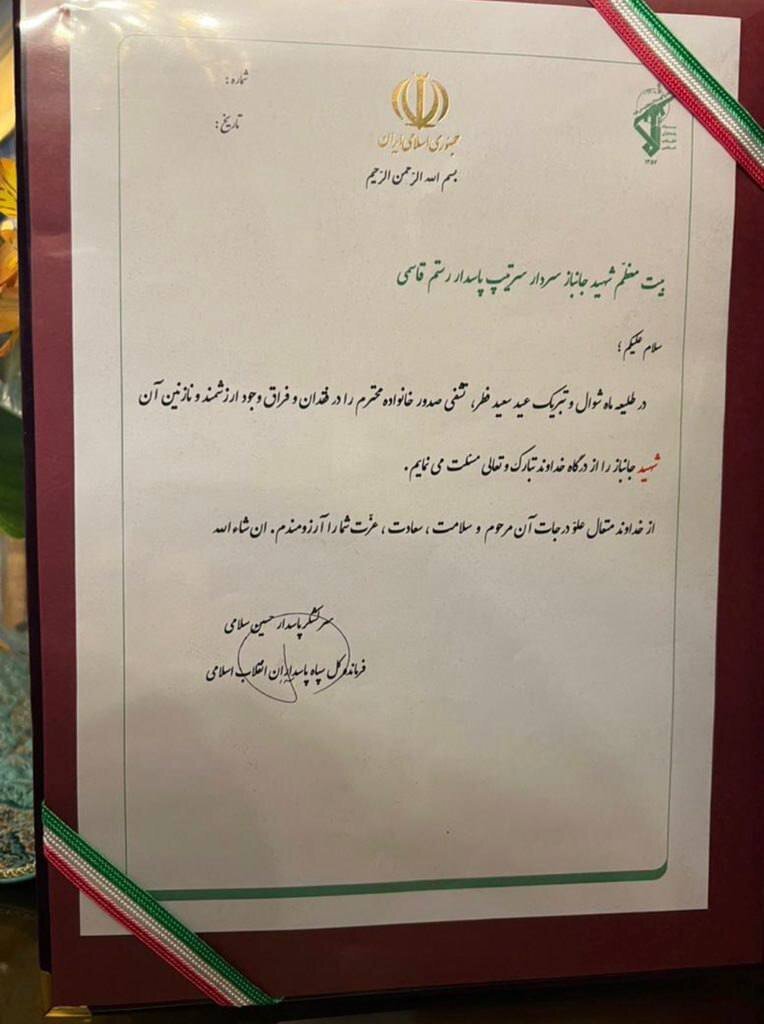 شماره:
تاریخ:
جمهوری اسلامی ایران
بسم الله الرحمن الرحیم
سپاه
پاسداران
انقلاب
اسلامی
۱۳۵۷
بیت معظّم شهید جانباز سردار سرتیپ پاسدار رستم قاسمی
سلام علیکم؛
در طلیعه ماه شوال و تبریک عید سعید فطر، تشفی صدور خانواده محترم را در فقدان و فراق وجود ارزشمند و نازنین آن
شهید جانباز را از درگاه خداوند تبارک و تعالی مسئلت می نمایم.
از خداوند متعال علوّ درجات آن مرحوم و سلامت، سعادت، عزّت شما را آرزومندم. ان شاء الله
سرلشکر پاسدار حسین سلامی
فرمانده کل سپاه پاسداران انقلاب اسلامی